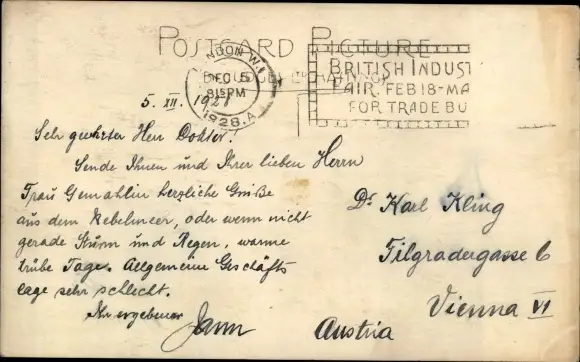 POSTCARD PICTURE
LONDON W.1
DEC 5
8.15PM
1928.A
BRITISH INDUST
FAIR. FEB 18-MA
FOR TRADE BU
5. XII. 1928
Sehr geehrter Herr Doktor!
Sende Ihnen und Ihrer lieben
Frau Gemahlin herzliche Grüße
aus dem Nebelmeer, oder wenn nicht
gerade Sturm und Regen, warme
trübe Tage. Allgemeine Geschäfts
lage sehr schlecht.
Ihr ergebener
Herrn
Dr Karl Kling
Filgradergasse 6
Vienna VI
Austria